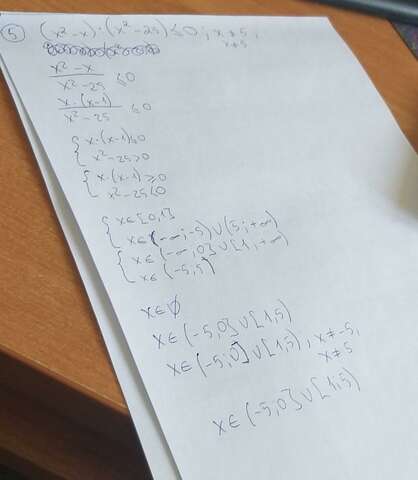 5 (x²-x):(x²-25)≤0; x≠-5;
x≠5
x²-x / x²-25 ≤0
x·(x-1) / x²-25 ≤0
{ x·(x-1)≤0
x²-25>0
{ x·(x-1)≥0
x²-25<0
{ x∈[0,1]
x∈(-∞;-5)∪(5;+∞)
{ x∈(-∞,0]∪[1,+∞)
x∈(-5,5)
x∈∅
x∈(-5,0]∪[1,5)
x∈(-5;0]∪[1,5), x≠-5,
x≠5
x∈(-5,0]∪[1;5)